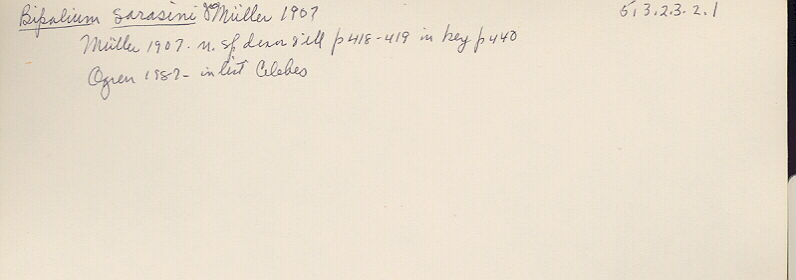 Bipalium sarasini Müller 1907 5.3.2.3.2.1
Müller 1907. n. sp descr & ill p 418-419 in key p 440
Ogren 1987- in list Celebes